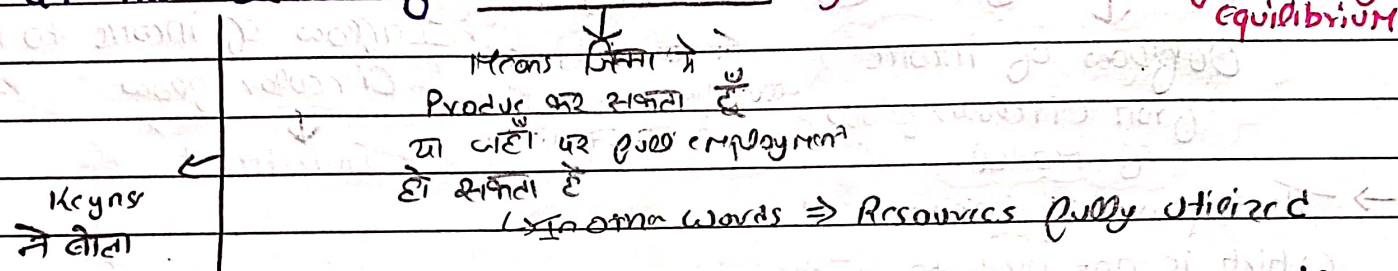 equilibrium
Means जितना मै
Produce कर सकता हूँ
या जहाँ पर full employment
हो सकता है
Keyns
ने बोला
In other words ⇒ Resources fully utilized